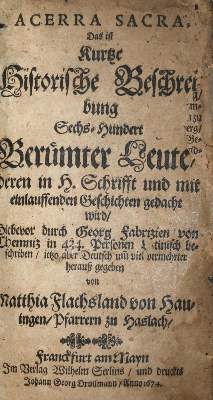 ACERRA SACRA,
Das ist
Kurtze
Historische Beschrei
bung
Sechs-Hundert
Berümter Leute/
deren in H. Schrifft und mit
einlauffenden Geschichten gedacht
wird/
Hiebevor durch Georg Fabrizien von
Chemniz in 424. Personen Latinisch be-
schriben/ jetzo aber Deutsch und viel vermehrter
herauß gegeben
von
Matthia Flachsland von Hau-
ingen/ Pfarrern zu Haslach/
Franckfurt am Mayn
Im Verlag Wilhelm Serlins/ und druckts
Johann Georg Drullmann/ Anno 1674.